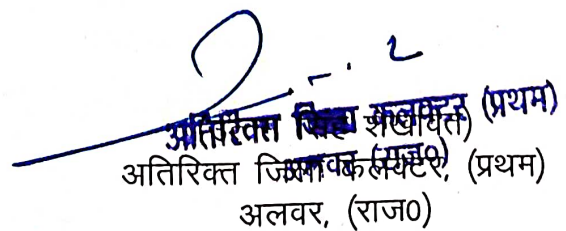 अतिरिक्त जिला कलक्टर (प्रथम)
शेखावत)
अलवर (राज०)
अतिरिक्त जिला कलक्टर, (प्रथम)
अलवर, (राज०)